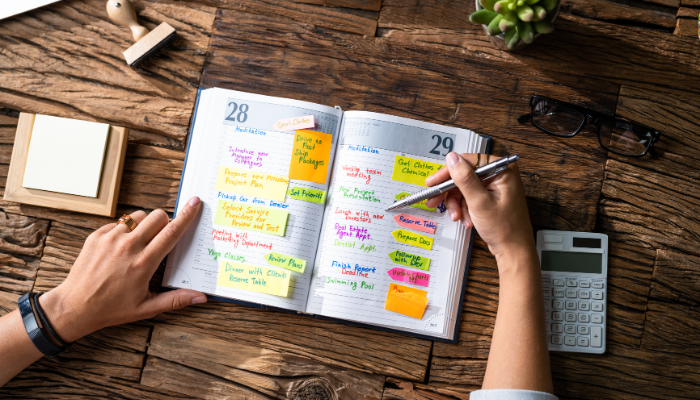 28
Meditation
Introduce new
Manager to
Colleagues
Prepare new
Project Plan
Pickup Car from Dealer
Select Service
Providers for
Renew and Test
Meeting with
Marketing Department
Yoga Classes
Dinner with Client
Reserve Table
Drive to
Post
Ship
Packages
Set Priority
Review Plans
29
Meditation
Weekly team
meeting
New Project
Presentation
Lunch with new
Investors
Real Estate
Agent Appt.
Dentist Appt.
Finish Report
Deadline
Swimming Pool
Get Clothes
Chemical
Reserve Table
Prepare
Docs
Followup
with Dev